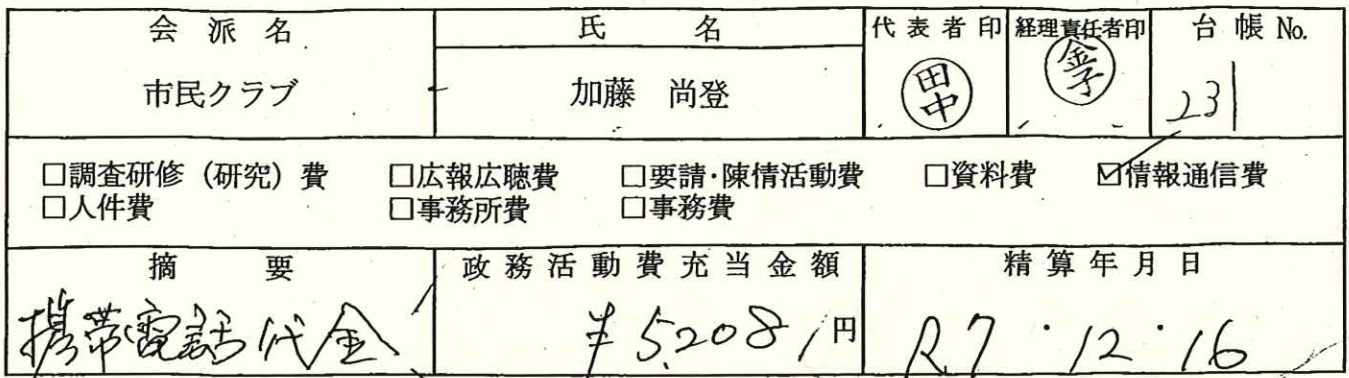 会派名 氏名 代表者印 経理責任者印 台帳No.
市民クラブ 加藤 尚登 田中 金子 231
□調査研修(研究)費 □広報広聴費 □要請・陳情活動費 □資料費 ☑情報通信費
□人件費 □事務所費 □事務費
摘要 政務活動費充当金額 精算年月日
携帯電話代金 ¥5,208円 R7・12・16